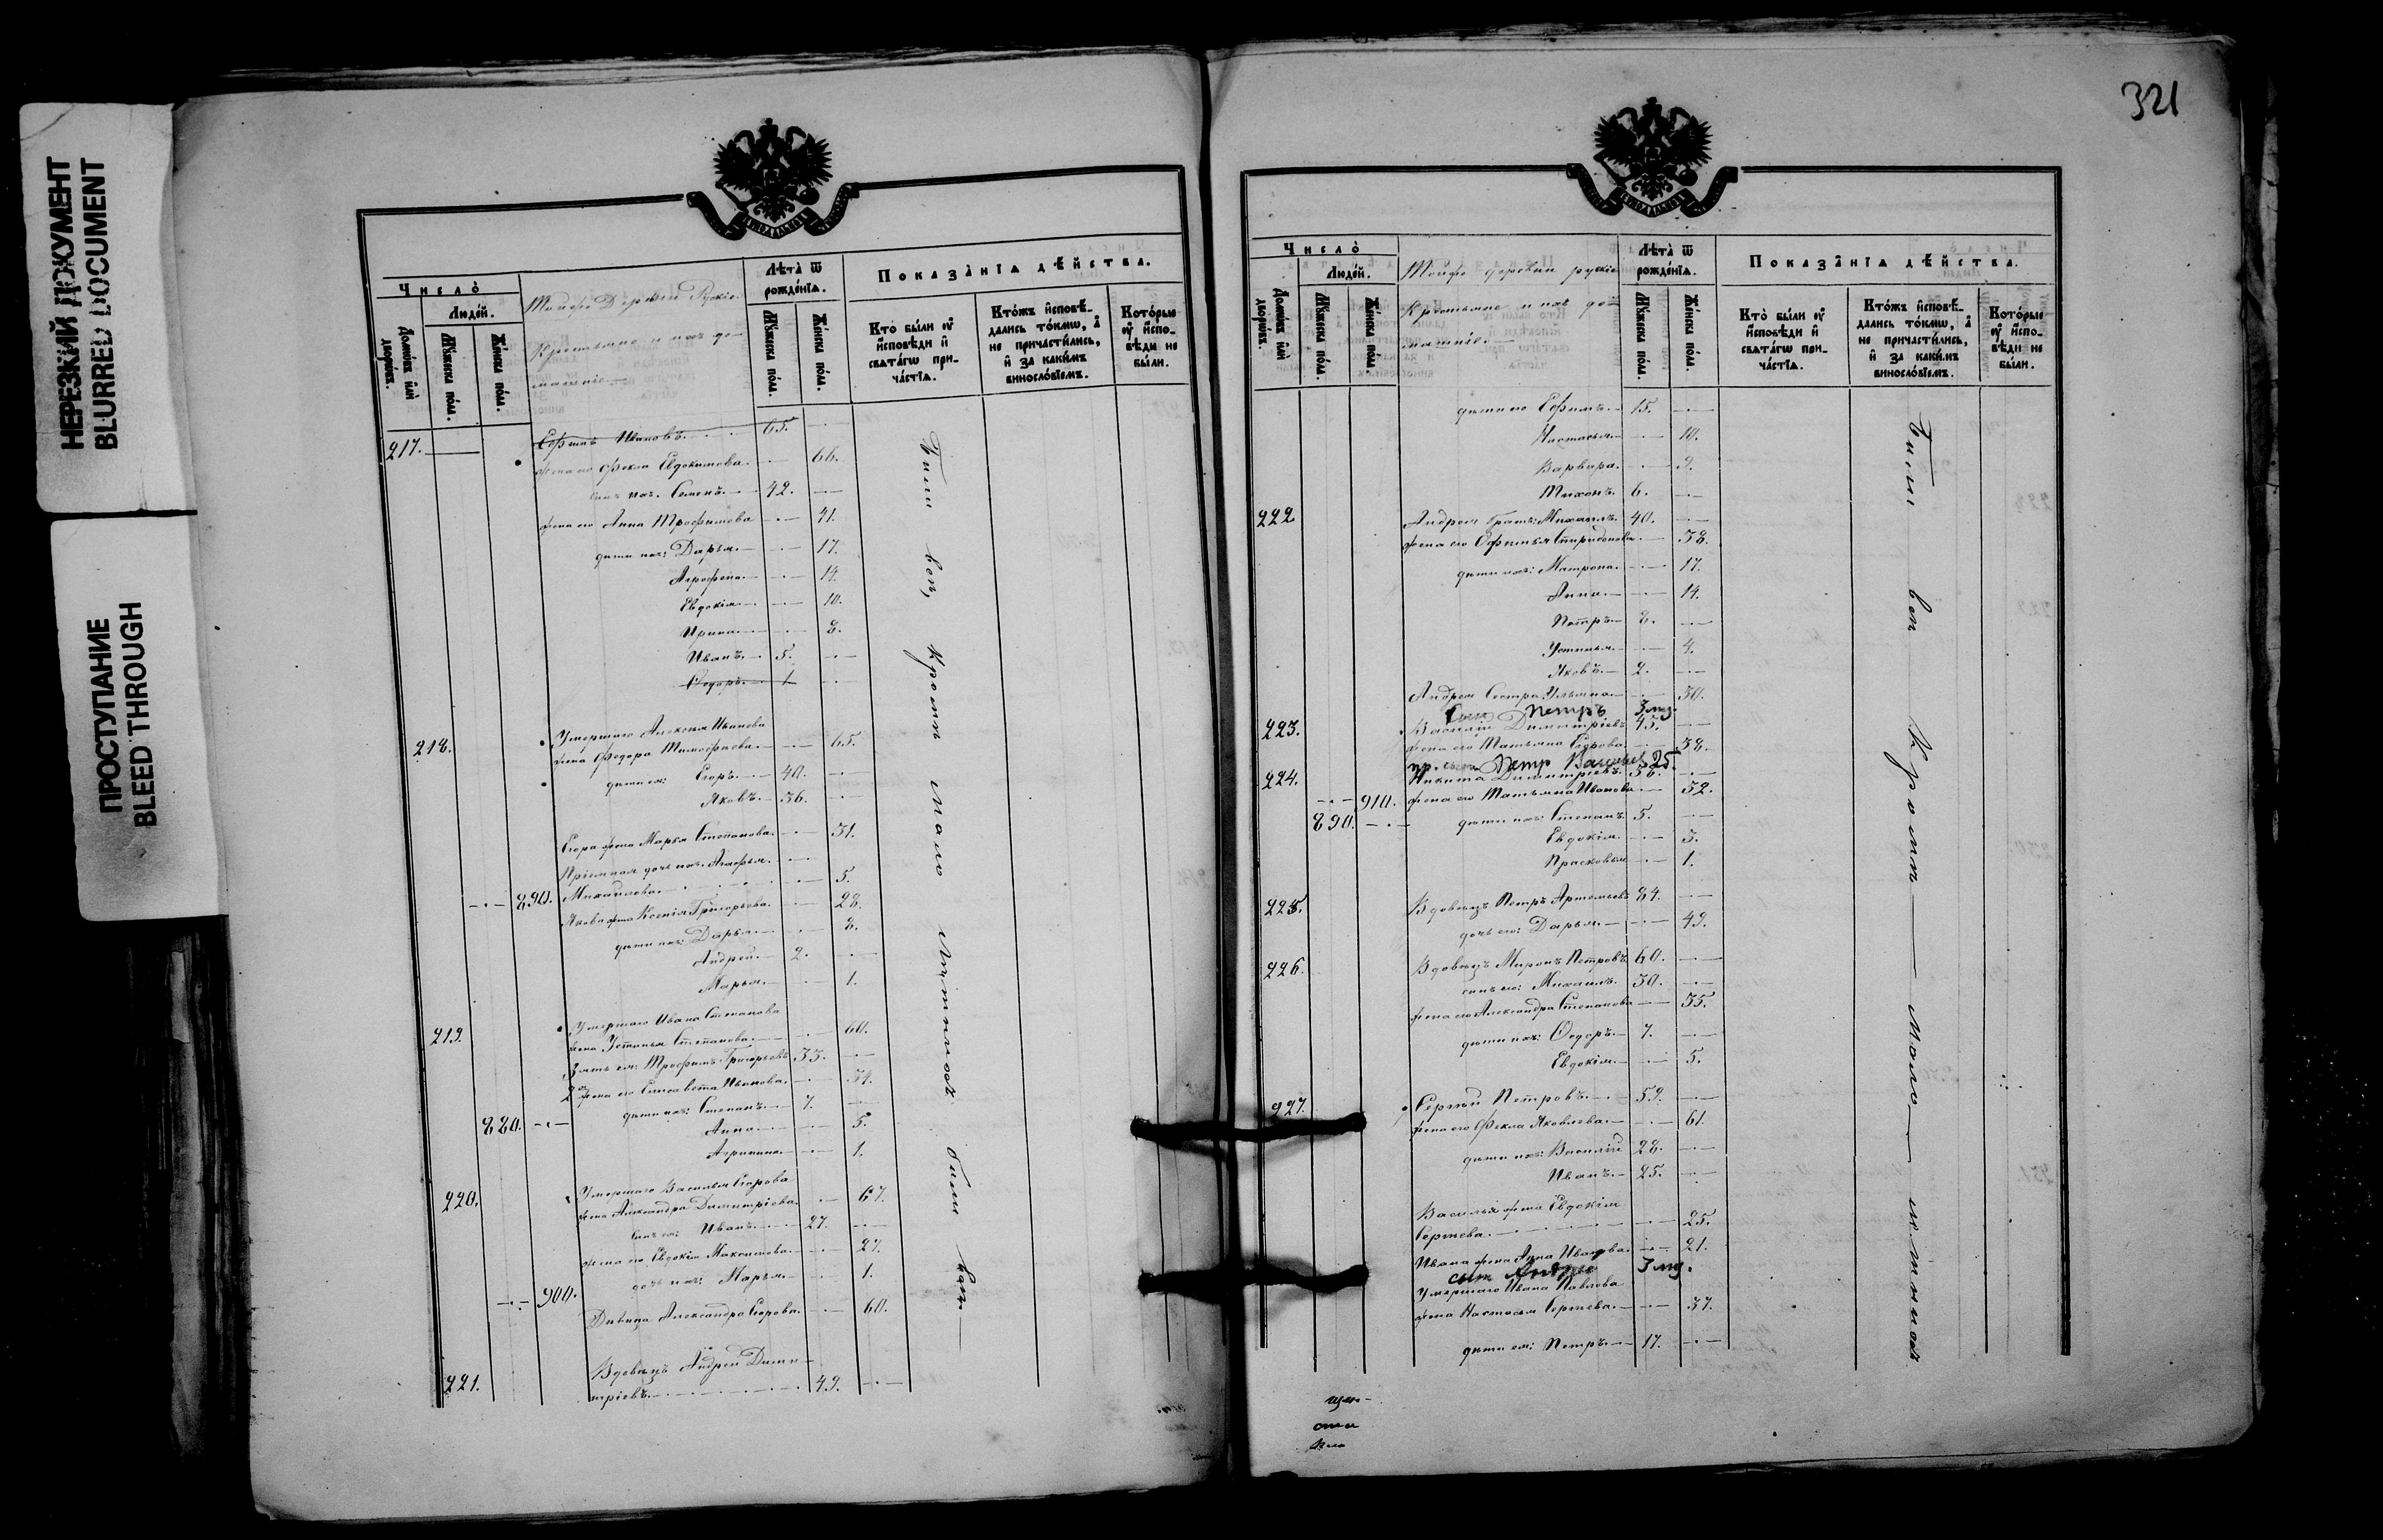 НЕРЕЗКИЙ ДОКУМЕНТ
BLURRED DOCUMENT
ПРОСТУПАНИЕ
BLEED THROUGH
Число̀
Людéй.
Домѡ́въ и҆лѝ дворѡ́въ.
Мꙋ́жеска по́лꙋ.
Же́нска по́лꙋ.
Тойже Деревни Рускіе
Крестьяне и ихъ до-
машніе.
Лѣта̀ ѿ рожде́нїѧ.
Мꙋ́жеска по́лꙋ.
Же́нска по́лꙋ.
Показа̑нїѧ дѣ́йства.
Кто̀ бы́ли ᲂу҆ и҆сповѣ́ди и҆ свѧта́гѡ при-ча́стїѧ.
Кто́жъ и҆сповѣ́-дались то́кмѡ, а҆ не причасти́лись, и҆ за каки́мъ виносло́вїемъ.
Кото́рые ᲂу҆ и҆спо-вѣ́ди не бы́ли.
217. Ефимъ Ивановъ. 65.
жена его Фекла Евдокимова. 66.
сынъ ихъ. Семенъ. 42.
жена его Анна Трофимова 41.
дѣти ихъ: Дарья. 17.
Агрофена. 14.
Евдокія. 10.
Ирина. 8.
Иванъ. 5.
Ѳедоръ. 1
218. Умершаго Алексѣя Иванова
жена Федора Тимофеева. 65.
дѣти ея: Егоръ. 40.
Яковъ. 36.
Егора жена Марья Степанова. 31.
Пріемная дочь ихъ. Агафья.
890. Михайлова. 5.
Якова жена Ксенія Григорьева. 28.
дѣти ихъ: Дарья. 8.
Андрей. 2.
Марья. 1.
219. Умершаго Ивана Степанова
жена Устинья Степанова. 60.
Зять ея: Трофимъ Григорьевъ 33.
2я жена его Елисавета Иванова. 34.
дѣти ихъ: Степанъ. 7.
880. Анна. 5.
Агрипина. 1.
220. Умершаго Василья Егорова
жена Александра Димитріева. 67.
сынъ ея: Иванъ. 27.
жена его Евдокія Максимова. 27.
дочь ихъ: Марья. 1.
900.
Дѣвица Александра Егорова. 60.
221. Вдовецъ Андрей Дими-
тріевъ. 49.
Были вси, кромѣ мало лѣтнихъ были вси
321
Число̀
Людéй.
Домѡ́въ и҆лѝ дворѡ́въ.
Мꙋ́жеска по́лꙋ.
Же́нска по́лꙋ.
Тойже деревни рускіе
Крестьяне и ихъ до-
машніе.
Лѣта̀ ѿ рожде́нїѧ.
Мꙋ́жеска по́лꙋ.
Же́нска по́лꙋ.
Показа̑нїѧ дѣ́йства.
Кто̀ бы́ли ᲂу҆ и҆сповѣ́ди и҆ свѧта́гѡ при-ча́стїѧ.
Кто́жъ и҆сповѣ́-дались то́кмѡ, а҆ не причасти́лись, и҆ за каки́мъ виносло́вїемъ.
Кото́рые ᲂу҆ и҆спо-вѣ́ди не бы́ли.
дѣти его Ефимъ. 15.
Настасья. 10.
Варвара. 9.
Тихонъ. 6.
222 Андрея братъ: Михаилъ. 40.
жена его Офимья Спиридонова. 38.
дѣти ихъ: Матрона. 17.
Анна. 14.
Петръ. 8.
Устинья. 4.
Яковъ. 2.
Андрея Сестра Ульяна. 30.
Сын Петръ 3 мц.
223. Василій Димитріевъ 45.
жена его Татьяна Егорова. 38.
Петр Васильев 25.
224. Никита Димитріевъ. 36.
910. жена его Татьяна Иванова. 32.
890. дѣти ихъ: Степанъ. 5.
Евдокія. 3.
Прасковья 1.
225. Вдовецъ Петръ Артемьевъ 84.
дочь его: Дарья. 49.
226. Вдовецъ Миронъ Петровъ. 60.
сынъ его: Михаилъ. 30.
жена его Александра Степанова 35.
дѣти ихъ: Ѳедоръ. 7.
Евдокія. 5.
227. Сергѣй Петровъ. 59.
жена его Фекла Яковлева. 61.
дѣти ихъ: Василій 28.
Иванъ. 25.
Василья жена Евдокія
Сергѣева. 25.
Ивана жена Анна Иванова. 21.
сын Андрей 3 мц.
Умершаго Ивана Павлова
жена Настасья Сергѣева. 37.
дѣти ея: Петръ. 17.
Были вси Кромѣ мало лѣтнихъ